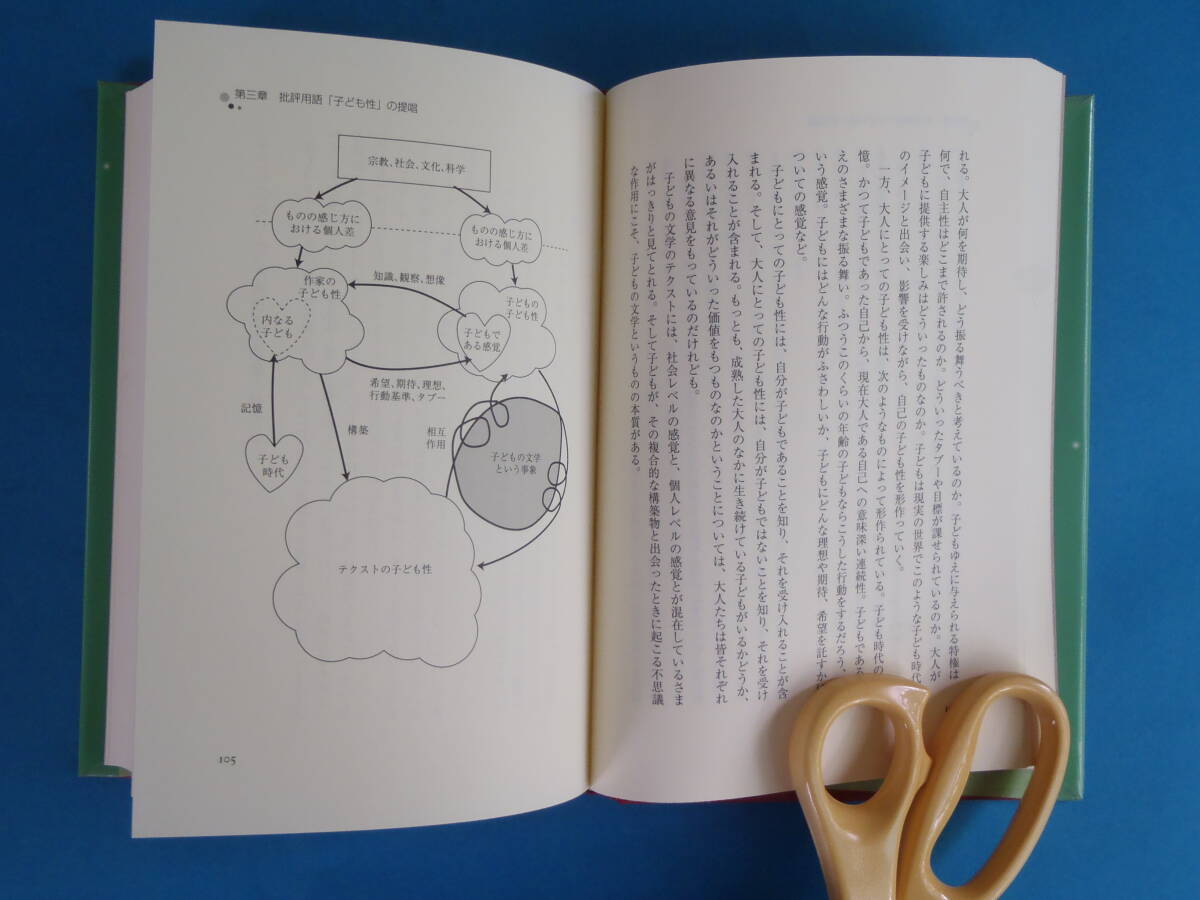 れる。大人が何を期待し、どう振る舞うべきと考えているのか。子どもゆえに与えられる特権は
何で、自主性はどこまで許されるのか。どういったタブーや目標が課せられているのか。大人が
子どもに提供する楽しみはどういったものなのか。子どもは現実の世界でこのような子ども時代
のイメージと出会い、影響を受けながら、自己の子ども性を形作っていく。
一方、大人にとっての子ども性は、次のようなものによって形作られている。子ども時代の
憶。かつて子どもであった自己から、現在大人である自己への意味深い連続性。子どもであ
えのさまざまな振る舞い。ふつうこのくらいの年齢の子どもならこうした行動をするだろう、
いう感覚。子どもにはどんな行動がふさわしいか、子どもにどんな理想や期待、希望を託すか
ついての感覚など。
子どもにとっての子ども性には、自分が子どもであることを知り、それを受け入れることが含
まれる。そして、大人にとっての子ども性には、自分が子どもではないことを知り、それを受け
入れることが含まれる。もっとも、成熟した大人のなかに生き続けている子どもがいるかどうか、
あるいはそれがどういった価値をもつものなのかということについては、大人たちは皆それぞれ
に異なる意見をもっているのだけれども。
子どもの文学のテクストには、社会レベルの感覚と、個人レベルの感覚とが混在しているさま
がはっきりと見てとれる。そして子どもが、その複合的な構築物と出会ったときに起こる不思議
な作用にこそ、子どもの文学というものの本質がある。
第三章 批評用語「子ども性」の提唱
宗教、社会、文化、科学
ものの感じ方に
おける個人差
ものの感じ方に
おける個人差
作家の
子ども性
内なる
子ども
知識、観察、想像
子どもの
子ども性
子どもで
ある感覚
希望、期待、理想、
行動基準、タブー
記憶
子ども
時代
構築
相互
作用
子どもの文学
という事象
テクストの子ども性
105